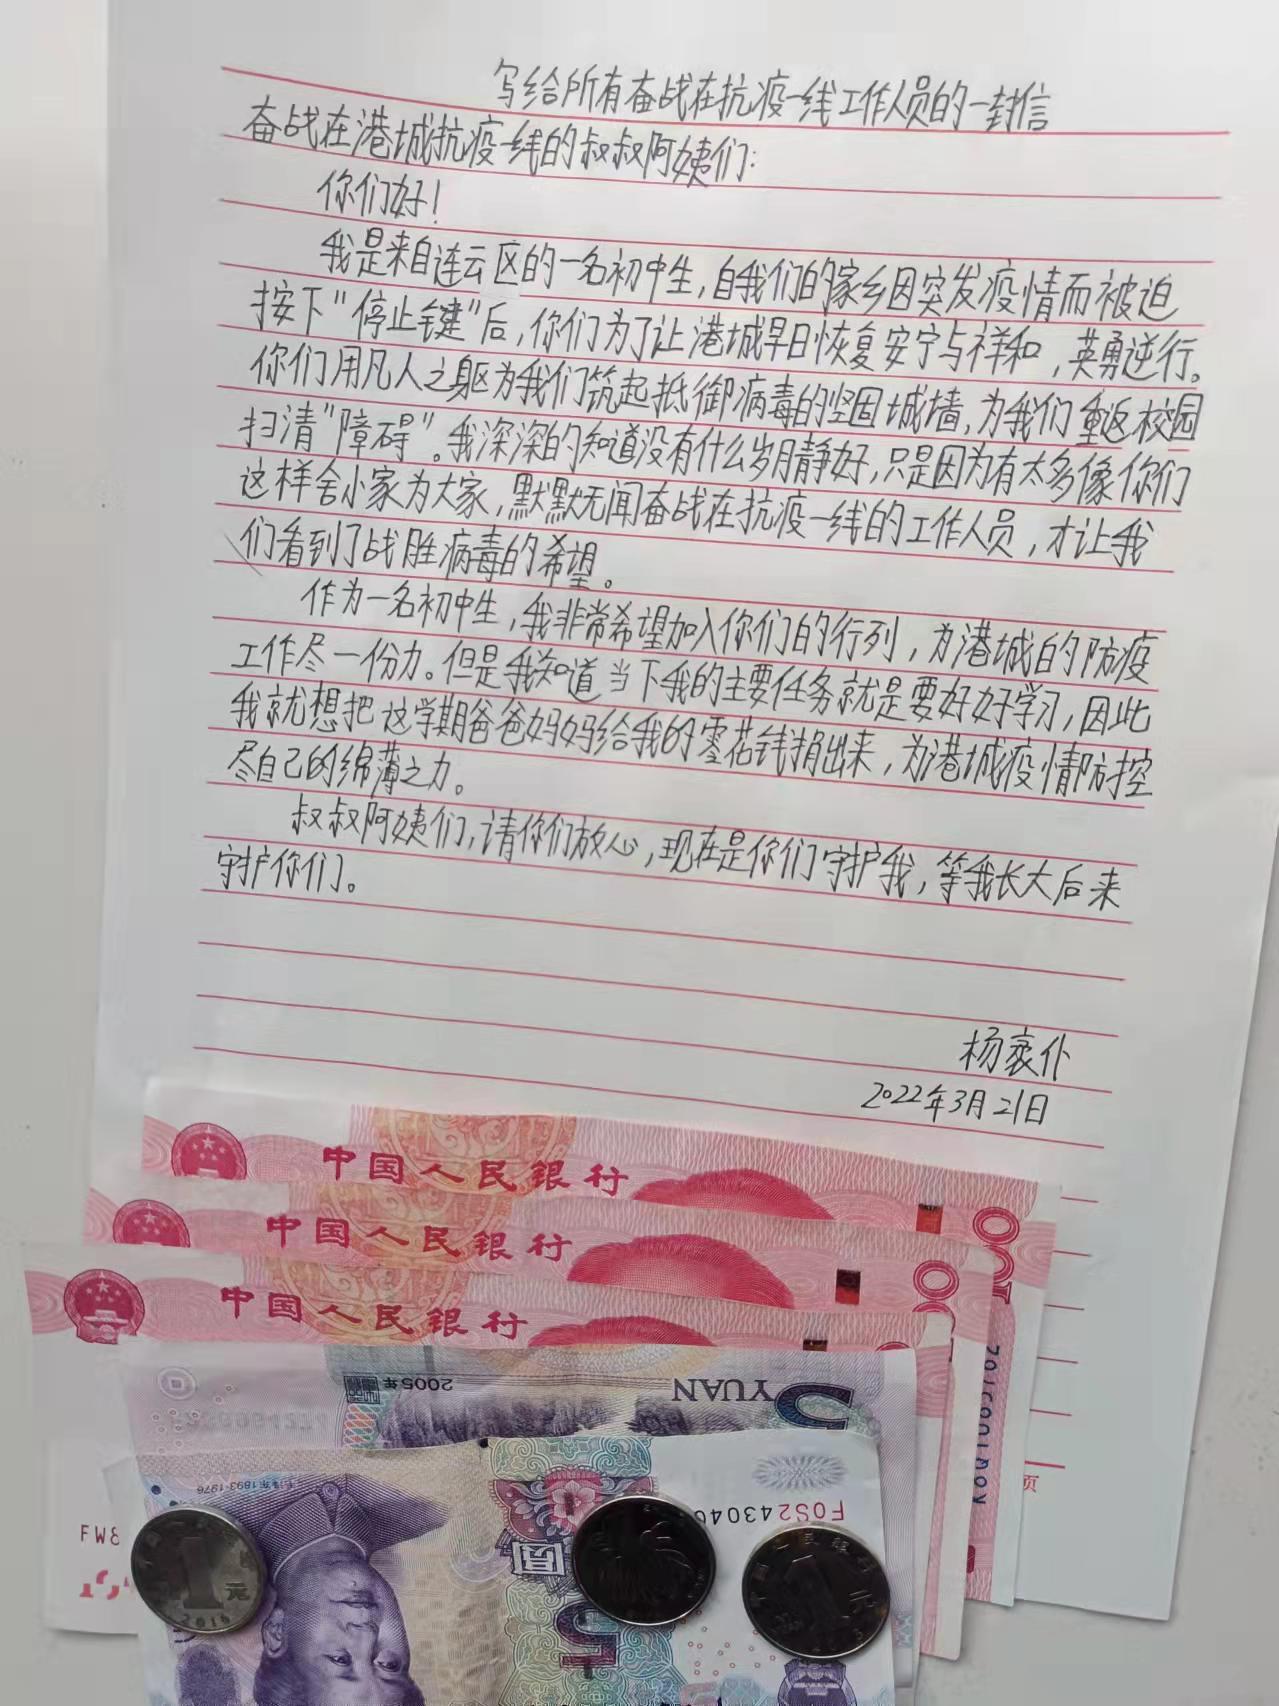 写给所有奋战在抗疫一线工作人员的一封信
奋战在港城抗疫一线的叔叔阿姨们:
你们好!
我是来自连云区的一名初中生,自我们的家乡因突发疫情而被迫
按下“停止键”后,你们为了让港城早日恢复安宁与祥和,英勇逆行。
你们用凡人之躯为我们筑起抵御病毒的坚固城墙,为我们重返校园
扫清“障碍”。我深深的知道没有什么岁月静好,只是因为有太多像你们
这样舍小家为大家,默默无闻奋战在抗疫一线的工作人员,才让我
们看到了战胜病毒的希望。
作为一名初中生,我非常希望加入你们的行列,为港城的防疫
工作尽一份力。但是我知道当下我的主要任务就是要好好学习,因此
我就想把这学期爸爸妈妈给我的零花钱捐出来,为港城疫情防控
尽自己的绵薄之力。
叔叔阿姨们,请你们放心,现在是你们守护我,等我长大后来
守护你们。
2022年3月21日
中国人民银行
100
中国人民银行
中国人民银行
2005年
5
YUAN
毛泽东1893-1976
圆
5
1元
2016
页